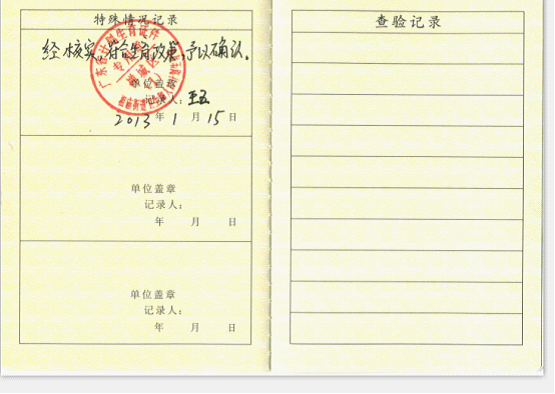 特殊情况记录
经核实，符合生育政策，予以确认。
广东省计划生育证件
专用章
单位盖章
记录人：王五
2013年1月15日
单位盖章
记录人：
年 月 日
单位盖章
记录人：
年 月 日
查验记录